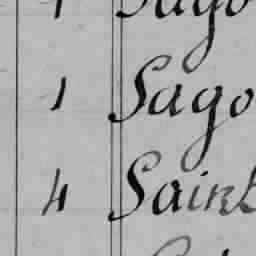 1 Sago
1 Sago
4 Saint